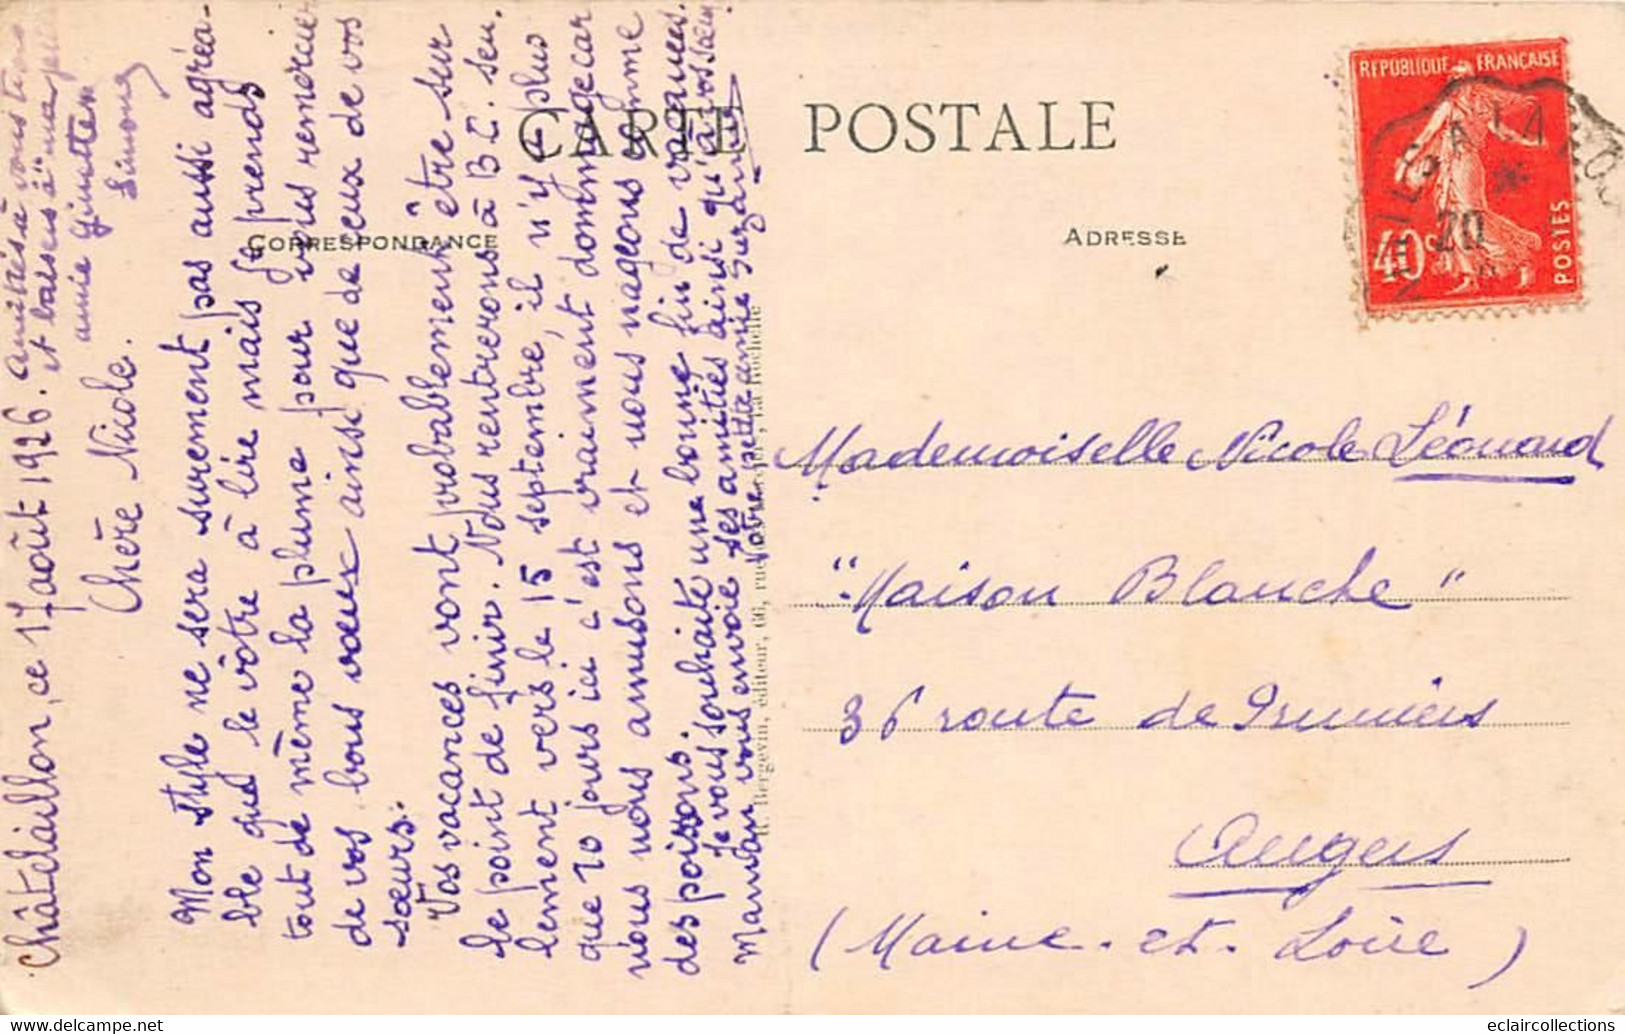 Châtelaillon, ce 17 août 1926.
Chère Nicole.
Mon style ne sera surement pas aussi agréa-
ble que le vôtre à lire mais je prends
tout de même la plume pour vous remercier
de vos bons vœux ainsi que de ceux de vos
sœurs.
Vos vacances vont probablement être sur
le point de finir. Nous rentrerons à B.C. seu-
lement vers le 15 septembre, il n'y a plus
que 20 jours ici c'est vraiment dommage car
nous nous amusons et nous nageons comme
des poissons.
Je vous souhaite une bonne fin de vacances.
Maman vous envoie ses amitiés ainsi qu'à vos sœurs
Votre petite amie Suzanne
amitiés à vous trois
et baisers à
amie Ginette
Simone
CARTE POSTALE
CORRESPONDANCE
ADRESSE
Bergevin, éditeur, 66, rue La Rochelle
REPUBLIQUE FRANÇAISE
40c
POSTES
20
Mademoiselle Nicole Léonard
"Maison Blanche"
36 route de Pruniers
Angers
(Maine-et-Loire)
eclaircollections
https://www.delcampe.net